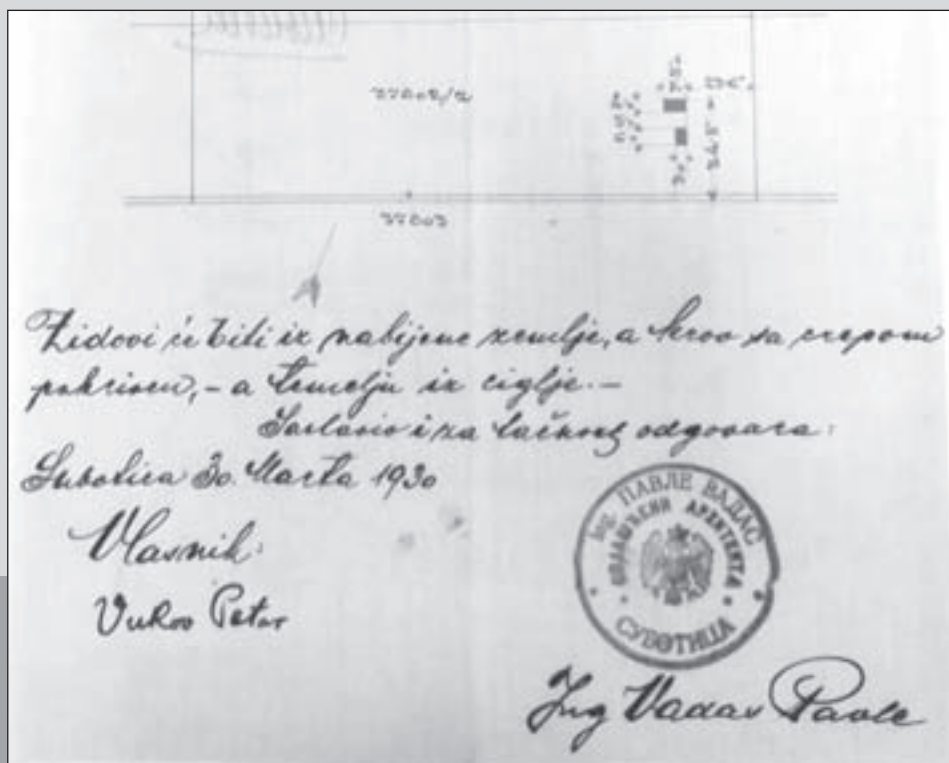 37002/2
37003
Zidovi će biti iz nabijene zemlje, a krov sa crepom
pokriven, - a temelju iz ciglje. -
Sastavio i za tačnost odgovara:
Subotica 30. Marta 1930
Vlasnik:
Vukov Petar
Ing. ПАВЛЕ ВАДАС
ОВЛАШЋЕНИ АРХИТЕКТА
СУБОТИЦА
Ing Vadas Pavle